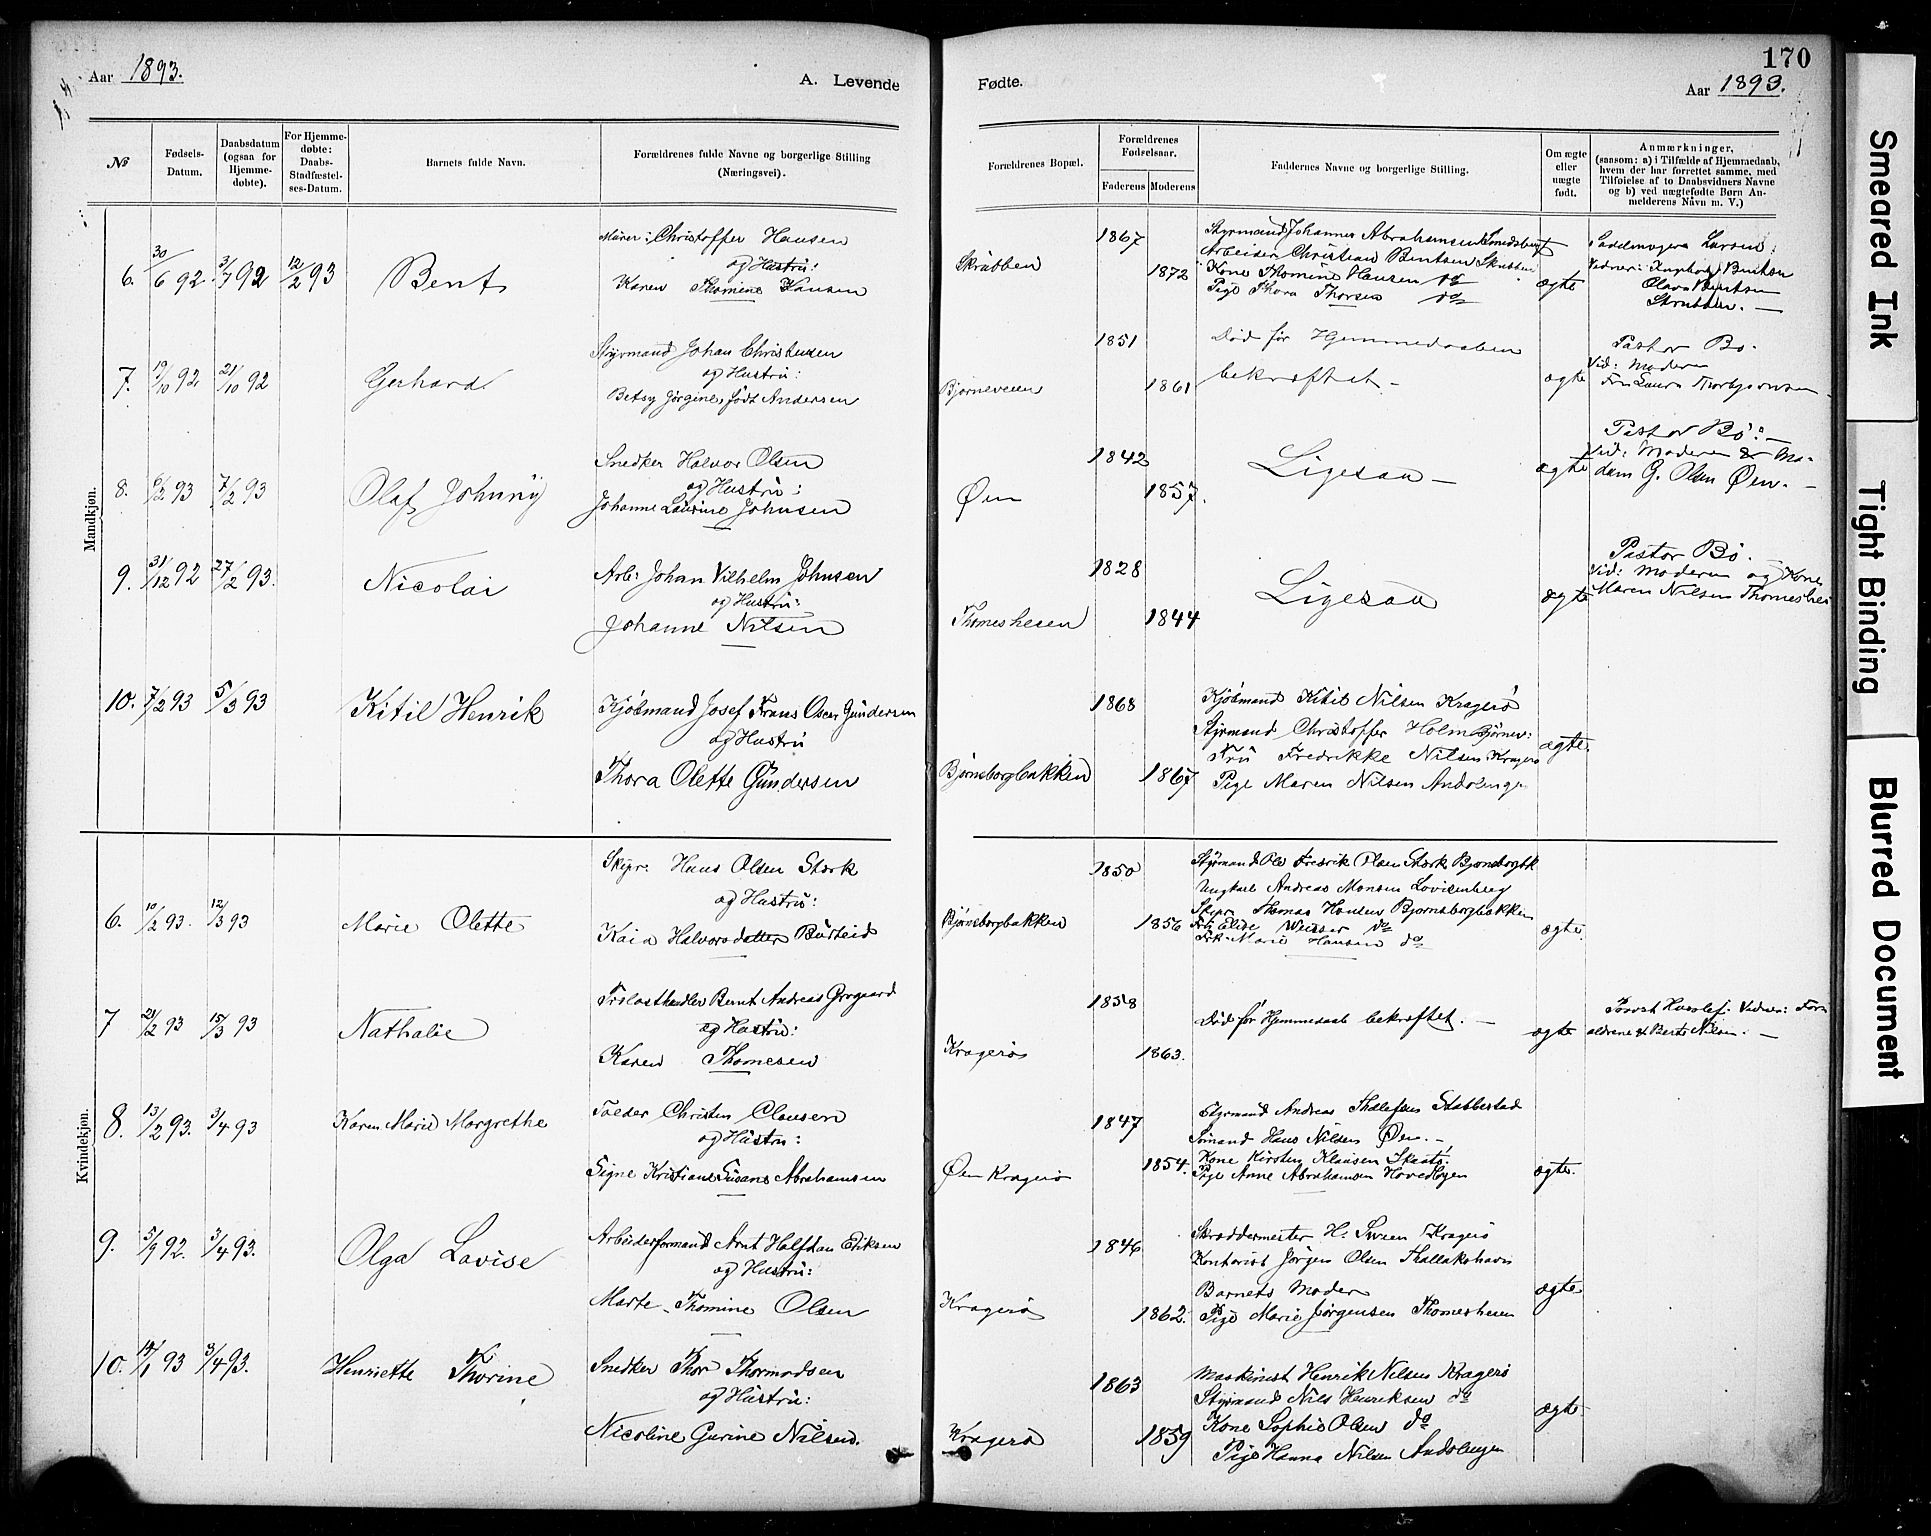 Aar 1893.
A. Levende
Fødte.
170
Aar 1893.
No
Fødsels-Datum.
Daabsdatum (ogsaa for Hjemme-døbte).
For Hjemme-døbte: Daabs-Stadfæstel-ses-Datum.
Barnets fulde Navn.
Forældrenes fulde Navne og borgerlige Stilling (Næringsvei).
Forældrenes Bopæl.
Forældrenes Fødselsaar.
Faderens
Moderens
Faddernes Navne og borgerlige Stilling.
Om ægte eller uægte født.
Anmærkninger,
(saasom: a) i Tilfælde af Hjemmedaab,
hvem der har forrettet samme, med
Tilføielse af to Daabsvidners Navne
og b) ved uægtefødte Børn An-
melderens Navn m. V.)
Mandkjøn.
6. 30/6 92. 3/7 92 12/2 93 Bent
Murer: Christoffer Hansen
og Hustru:
Karen Thomine Hansen
Skrubben 1867 1872
Styrmand Johannes Abrahamsen Smedsbugt
Arbeider Christian Bentsen Skrubben
Kone Thomine Hansen do
Pige Thora Thorsen do
ægte
Sadelmager Larsen:
Vidner: Ingeborg Bentsen
Olava Bentsen
Skrubben. —
7. 19/10 92 21/10 92 Gerhard
Styrmand Johan Christensen
og Hustru:
Betsy Jørgine, født Andersen
Bjørneveien 1851 1861
Død før Hjemmedaaben
bekræftet —
ægte
Pastor Bø.
Vid: Moderen
Fru Laura Thorbjørnsen
8. 6/2 93 7/2 93 Olaf Johnny
Snedker Halvor Olsen
og Hustru:
Johanne Laurine Johnsen
Øen 1842 1857.
Ligesaa —
ægte
Pastor Bø: —
Vid: Moderen & Ma-
dam G. Olsen Øen. —
9. 31/12 92 27/2 93. Nicolai
Arb: Johan Vilhelm Johnsen
og Hustru:
Johanne Nilsen
Thomesheien 1828 1844
Ligesaa
ægte
Pastor Bø. —
Vid: Moderen og Kone
Maren Nilsen Thomeshei
10. 7/2 93 5/3 93 Kitil Henrik
Kjøbmand Josef Frans Oscar Gundersen
og Hustru
Thora Olette Gundersen
Bjørnsborgbakken 1868 1867
Kjøbmand Kitil Nilsen Kragerø
Styrmand Christoffer Holm Bjørnev:
Fru Fredrikke Nilsen Kragerø
Pige Maren Nilsen
ægte.
Kvindekjøn.
6. 10/2 93. 12/3 93 Marie Olette
Skipr: Hans Olsen Stærk
og Hustru:
Kaia Halvorsdatter Burteid
Bjørnsborgbakken 1850 1856
Styrmand Ole Fredrik Olsen Stærk Bjørnsborgbk
Ungkarl Andreas Monsen Lovisenberg
Skipr Thomas Hansen Bjørnsborgbakken
Frk Elise do
Frk. Marie Hansen do
ægte.
7 21/2 93 15/3 93 Nathalie
Trælasthandler Bernt Andreas Grogaard
og Hustru:
Karen Thomesen
Kragerø 1858 1863.
Død før Hjemmedaab bekræftet. —
ægte
Provst Vidner: For-
ældrene & Berte Nilsen. —
8. 13/2 93. 3/4 93 Karen Marie Margrethe
Tolder Christen Clausen
og Hustru:
Signe Kristiane Susane Abrahamsen
Øen Kragerø 1847 1854.
Styrmand Andreas Thalefsen Stabbestad
Sømand Hans Nilsen Øen. —
Kone Kirsten Klausen Skaatø.
Pige Anne Abrahamsen Hovedbyen
ægte.
9. 5/9 92. 3/4 93. Olga Lovise
Arbeidsformand Arnt Halfdan Eriksen
og Hustru:
Marte Thomine Olsen
Kragerø 1846 1862.
Skræddermester H. Sveen Kragerø
Kontorist Jørgen Olsen Thallakshavn
Barnets Moder
Pige Marie Jørgensen Thomesheien
ægte
10. 3/4 93. Henriette Thorine
Snedker Thor Thormodsen
og Hustru:
Nicoline Gurine Nilsen.
Kragerø 1863 1859
Maskinist Henrik Nilsen Kragerø
Styrmand Nils Henriksen do
Kone Sophie Olsen do
Pige Hanna Nilsen
ægte
Smeared Ink
Tight Binding
Blurred Document